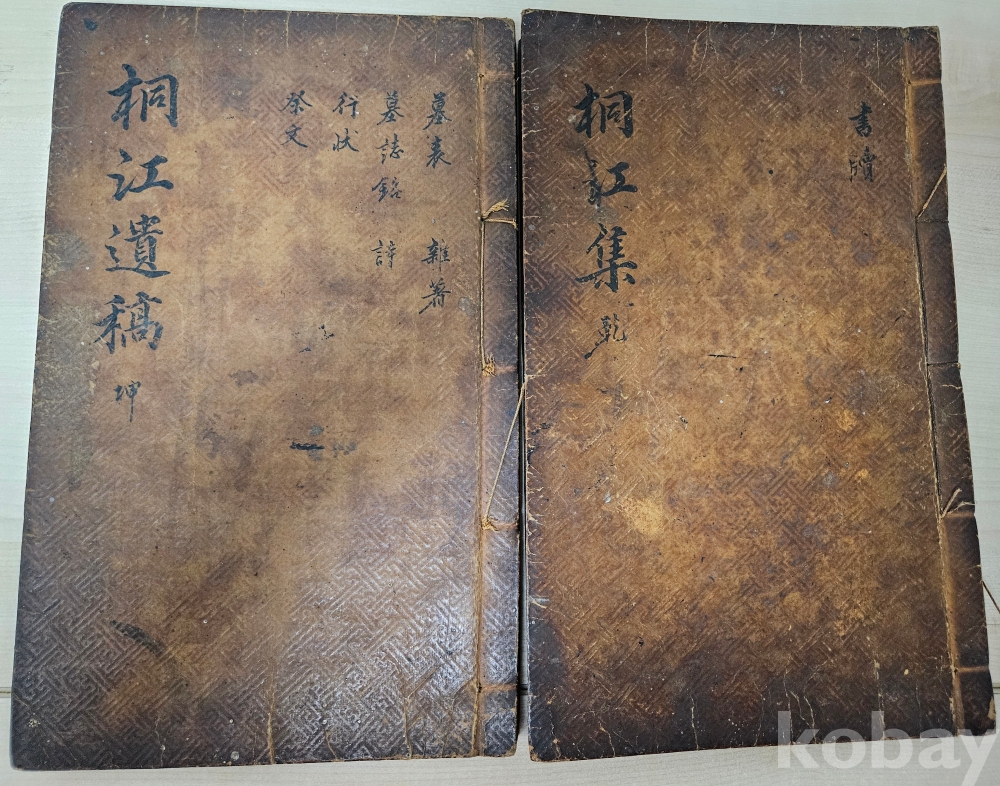 桐江集 乾
書牘
桐江遺稿 坤
墓表 雜著
墓誌銘 詩
行狀
祭文
kobay